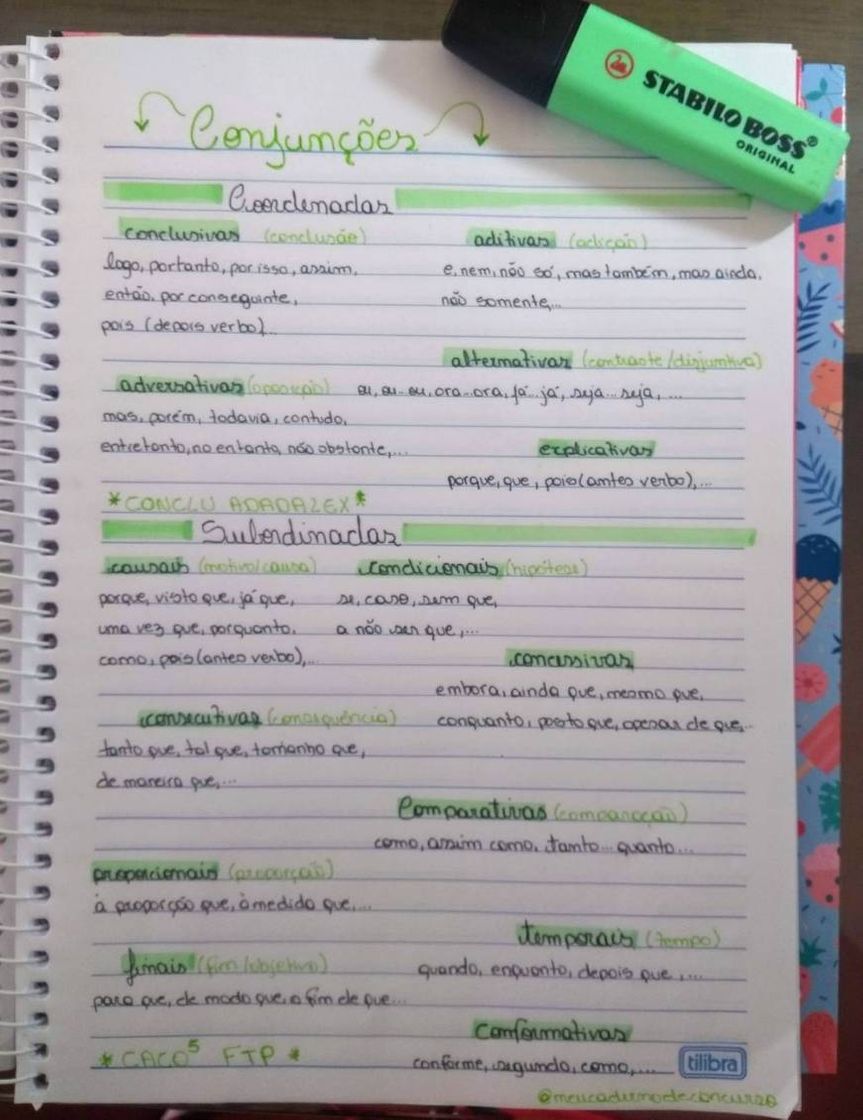 STABILO BOSS®
ORIGINAL
Conjunções
Coordenadas
conclusivas (conclusão)
logo, portanto, por isso, assim,
então, por conseguinte,
pois (depois verbo)...
aditivas (adição)
e, nem, não só, mas também, mas ainda,
não somente,...
alternativas (contraste/disjuntiva)
ou, ou... ou, ora...ora, já... já, seja... seja, ...
adversativas (oposição)
mas, porém, todavia, contudo,
entretanto, no entanto, não obstante,...
explicativas
porque, que, pois (antes verbo),...
*CONCLU ADADALEX*
Subordinadas
causais (motivo/causa)
porque, visto que, já que,
uma vez que, porquanto.
como, pois (antes verbo),...
condicionais (hipótese)
se, caso, sem que,
a não ser que,...
concessivas
embora, ainda que, mesmo que,
conquanto, posto que, apesar de que,...
consecutivas (consequência)
tanto que, tal que, tamanho que,
de maneira que,...
Comparativas (comparação)
como, assim como, tanto... quanto...
proporcionais (proporção)
à proporção que, à medida que,...
temporais (tempo)
quando, enquanto, depois que,...
finais (fim/objetivo)
para que, de modo que, a fim de que...
Conformativas
conforme, segundo, como,...
*CACO⁵ FTP *
tilibra
@meucadernodeconcurso